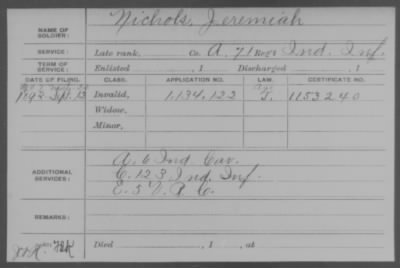 NAME OF SOLDIER: Nichols, Jeremiah
SERVICE: Late rank, Co. A, 71 Reg't Ind. Inf.
TERM OF SERVICE: Enlisted , 1 Discharged , 1
DATE OF FILING. CLASS. APPLICATION NO. LAW. CERTIFICATE NO.
1892 Sept. 13 Invalid, 1,134,122 J. 1153240
Widow,
Minor,
ADDITIONAL SERVICES:
A. 6 Ind. Cav.
C. 123 Ind. Inf.
E. 5 V. R. C.
REMARKS:
Died , 1 , at